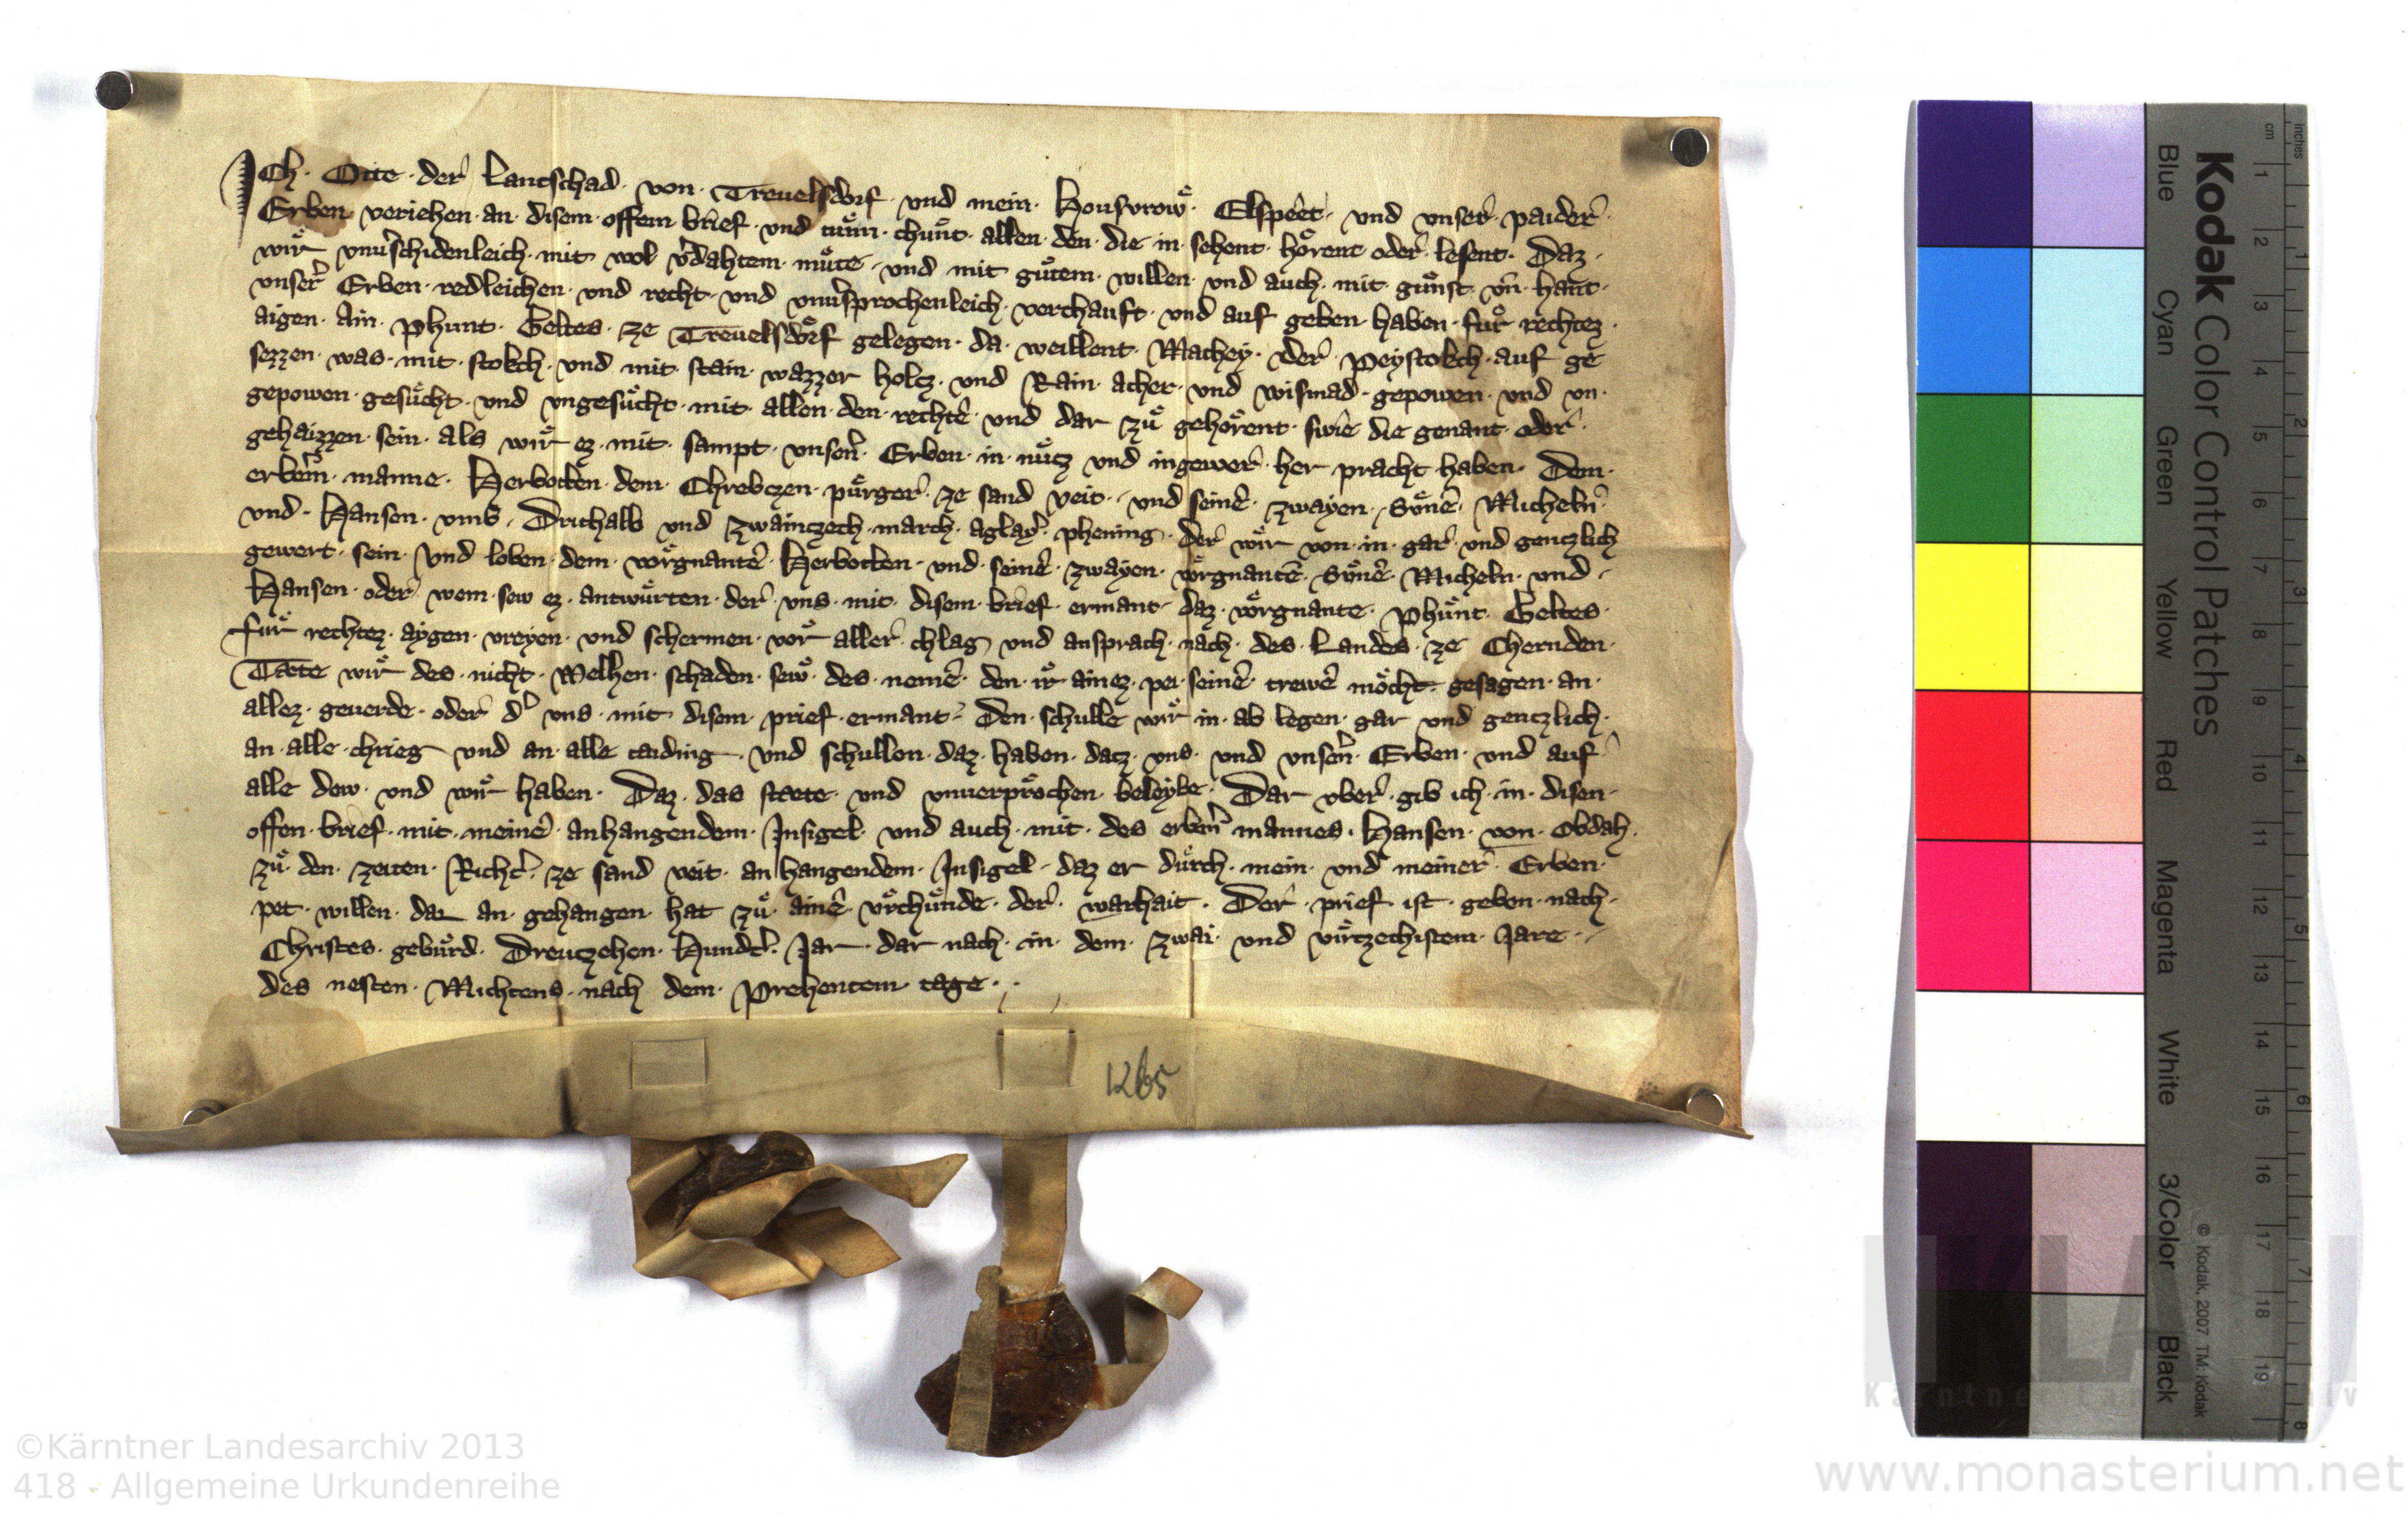 Ich · Otte · der · Lantschad · von · Treuelsdorf · vnd mein · Housvrow · Elspet · vnd vnser · paider ·
Erben veriehen · an · disem · offem brief · vnd tuͤn · chunt · allen · den · die · in · sehent · hoͤrent oder · lesent · Daz ·
wir vnuerschidenleich · mit wol v̉dahtem · muͤte · vnd mit guͤtem · willen · vnd auch · mit · gunst · vn̄ · hant ·
vnser Erben · redleichen · vnd recht · vnd vnuersprochenleich · verchauft · vnd auf geben · haben · fuͤr rechtez ·
aigen · Ain · Phunt · Geltes · ze Treuelsdorf gelegen · da · weillent · Mathey · der · Peystokch · auf ge
sezzen · was · mit · stokch · vnd · mit · stain · wazzer holcz · vnd Rain · acher · vnd wismad · gepowen · vnd vn ·
gepowen · gesuͤcht · vnd vngesuͤcht · mit · allen · den · rechtē · vnd dar zuͤ gehoͤrent · swie die genant · oder ·
gehaizzen · sein · als wir ez · mit · sampt · vnsern̄ · Erben · in · nuͤtz vnd ingewer · her pracht haben · Dem ·
erberm̄ · manne · Herbotten · dem · Chrebczen · puͤrger · ze sand veit · vnd seinē · zwayen · Suͤnē · Micheln ·
vnd · Hansen · vmb · Drithalb vnd zwainczech · march · aglayer · phening · der wir von · in · gar · vnd genczlich
gewert · sein · Vnd loben · dem · vorgnantē · Herbotten · vnd · seinē · zwayen · vorgnantē · Suͤnē · Micheln · vnd ·
Hansen · oder wem · sew ez · antwuͤrten · der vns · mit · disem · brief · ermant · daz · vorgnante · Phunt · Geltes ·
fuͤr rechtez · aygen · vreyen · vnd schermen · vor aller chlag vnd ansprach · nach · des · Landes · ze Chernden ·
Taete wir des · nicht · Welhen · schaden · sew · des · nemē · den · ir ainez · pei · seinē · trewē moͤcht · gesagen · an ·
allez · geuerde · oder d̉ vns · mit · disem · prief · ermant · Den · schulle wir in · ab legen · gar vnd genczlich ·
an · alle · chrieg vnd an · alle taiding · vnd schullen · daz · haben · datz · vns · vnd vnsern̄ · Erben · vnd auf
alle dew · vnd wir haben · Daz · das staete · vnd vnuerprochen beleybe · Dar vber · gib ich · in · disen ·
offen · brief · mit · meinē · anhangendem · Insigel · vnd auch · mit · des erberm̄ mannes · Hansen · von · Obdah ·
zuͤ · den · zeiten · Richter · ze sand veit · an hangendem · Insigel · daz er durch · mein · vnd meiner · Erben ·
pet · willen · dar an · gehangen hat zuͤ · ainē · vrchuͤnde · der · warhait · Der · prief ist · geben · nach ·
Christes · geburd · Dreuczehen · Hundert · Jar · dar nach · in · dem · zwai · vnd virtzechistem · Jare ·
des nesten · Michtens · nach dem · Prehentem tage ·
1265
Kodak Color Control Patches
© Kodak, 2007 TM: Kodak
Blue Cyan Green Yellow Red Magenta White 3/Color Black
cm 1 2 3 4 5 6 7 8 9 10 11 12 13 14 15 16 17 18 19
inches 1 2 3 4 5 6 7 8
©Kärntner Landesarchiv 2013
418 - Allgemeine Urkundenreihe
www.monasterium.net